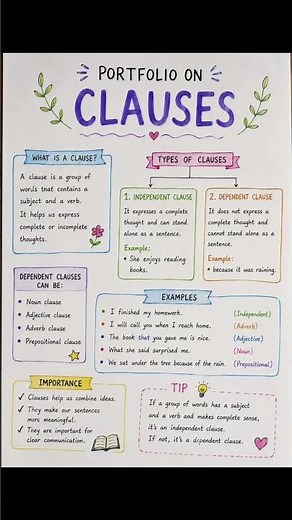 PORTFOLIO ON
CLAUSES
WHAT IS A CLAUSE?
A clause is a group of
words that contains a
subject and a verb.
It helps us express
complete or incomplete
thoughts.
TYPES OF CLAUSES
1. INDEPENDENT CLAUSE
It expresses a complete
thought and can stand
alone as a sentence.
Example:
• She enjoys reading
books.
2. DEPENDENT CLAUSE
It does not express a
complete thought and
cannot stand alone as
a sentence.
Example:
• because it was raining.
DEPENDENT CLAUSES
CAN BE:
• Noun clause
• Adjective clause
• Adverb clause
• Prepositional clause
EXAMPLES
• I finished my homework. (Independent)
• I will call you when I reach home. (Adverb)
• The book that you gave me is nice. (Adjective)
• What she said surprised me. (Noun)
• We sat under the tree because of the rain. (Prepositional)
IMPORTANCE
✓ Clauses help us combine ideas.
✓ They make our sentences
more meaningful.
✓ They are important for
clear communication.
TIP
If a group of words has a subject
and a verb and makes complete sense,
it's an independent clause.
If not, it's a dependent clause.